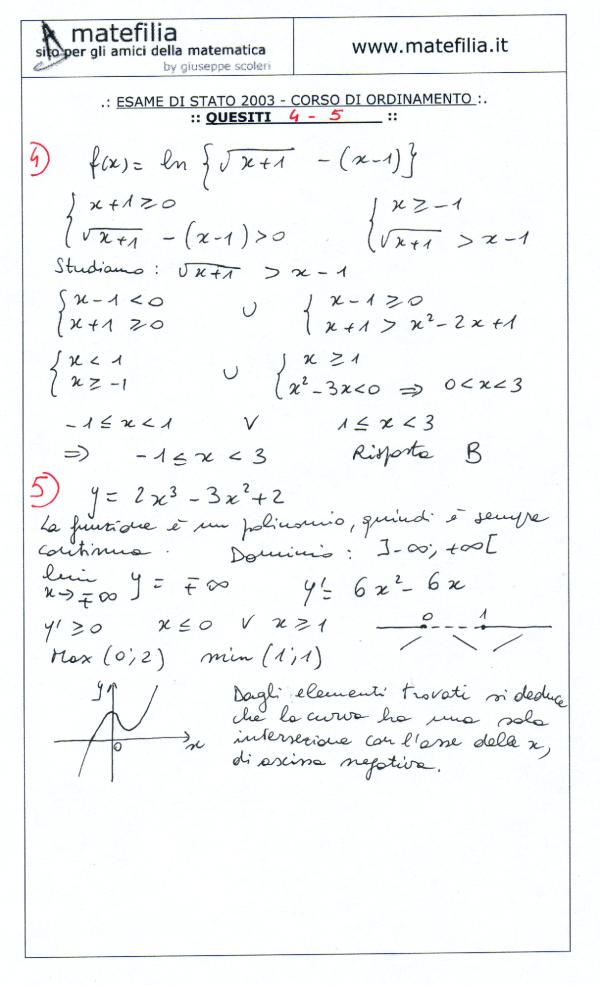 matefilia
sito per gli amici della matematica
by giuseppe scoleri
www.matefilia.it
.: ESAME DI STATO 2003 - CORSO DI ORDINAMENTO :.
:: QUESITI 4 - 5 ::
4) f(x) = ln {√(x+1) - (x-1)}
{ x+1 ≥ 0 { x ≥ -1
{ √(x+1) - (x-1) > 0 { √(x+1) > x-1
Studiamo: √(x+1) > x-1
{ x-1 < 0 ∪ { x-1 ≥ 0
{ x+1 ≥ 0 { x+1 > x²-2x+1
{ x < 1 ∪ { x ≥ 1
{ x ≥ -1 { x²-3x<0 ⇒ 0<x<3
-1 ≤ x < 1 ∨ 1 ≤ x < 3
⇒ -1 ≤ x < 3 Risposta B
5) y = 2x³ - 3x² + 2
La funzione è un polinomio, quindi è sempre
continua. Dominio: ]-∞; +∞[
lim x→∓∞ y = ∓∞ y' = 6x² - 6x
y' ≥ 0 x ≤ 0 ∨ x ≥ 1 0 1
Max (0;2) min (1;1)
y
x
0
Dagli elementi trovati si deduce
che la curva ha una sola
intersezione con l'asse delle x,
di ascissa negativa.